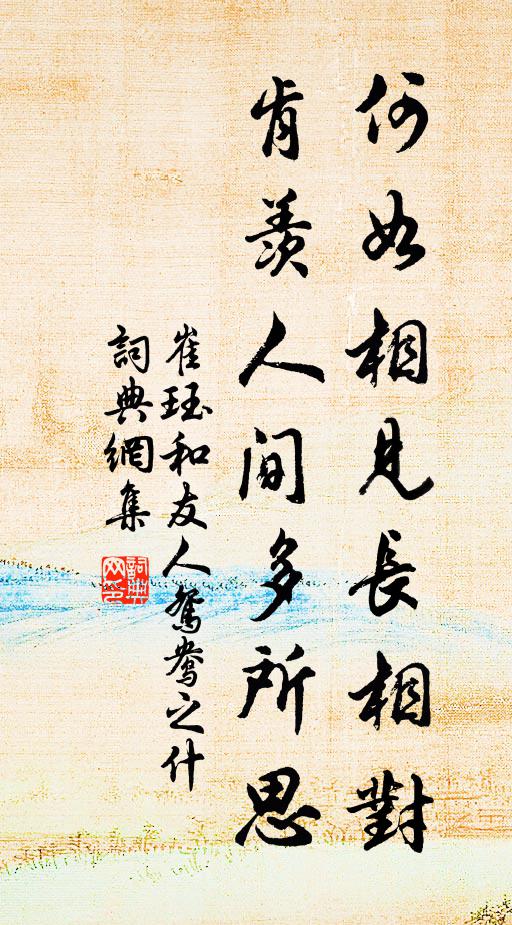 何如相見長相對
肯羨人間多所思
崔珏和友人鴛鴦之什
詞典網集